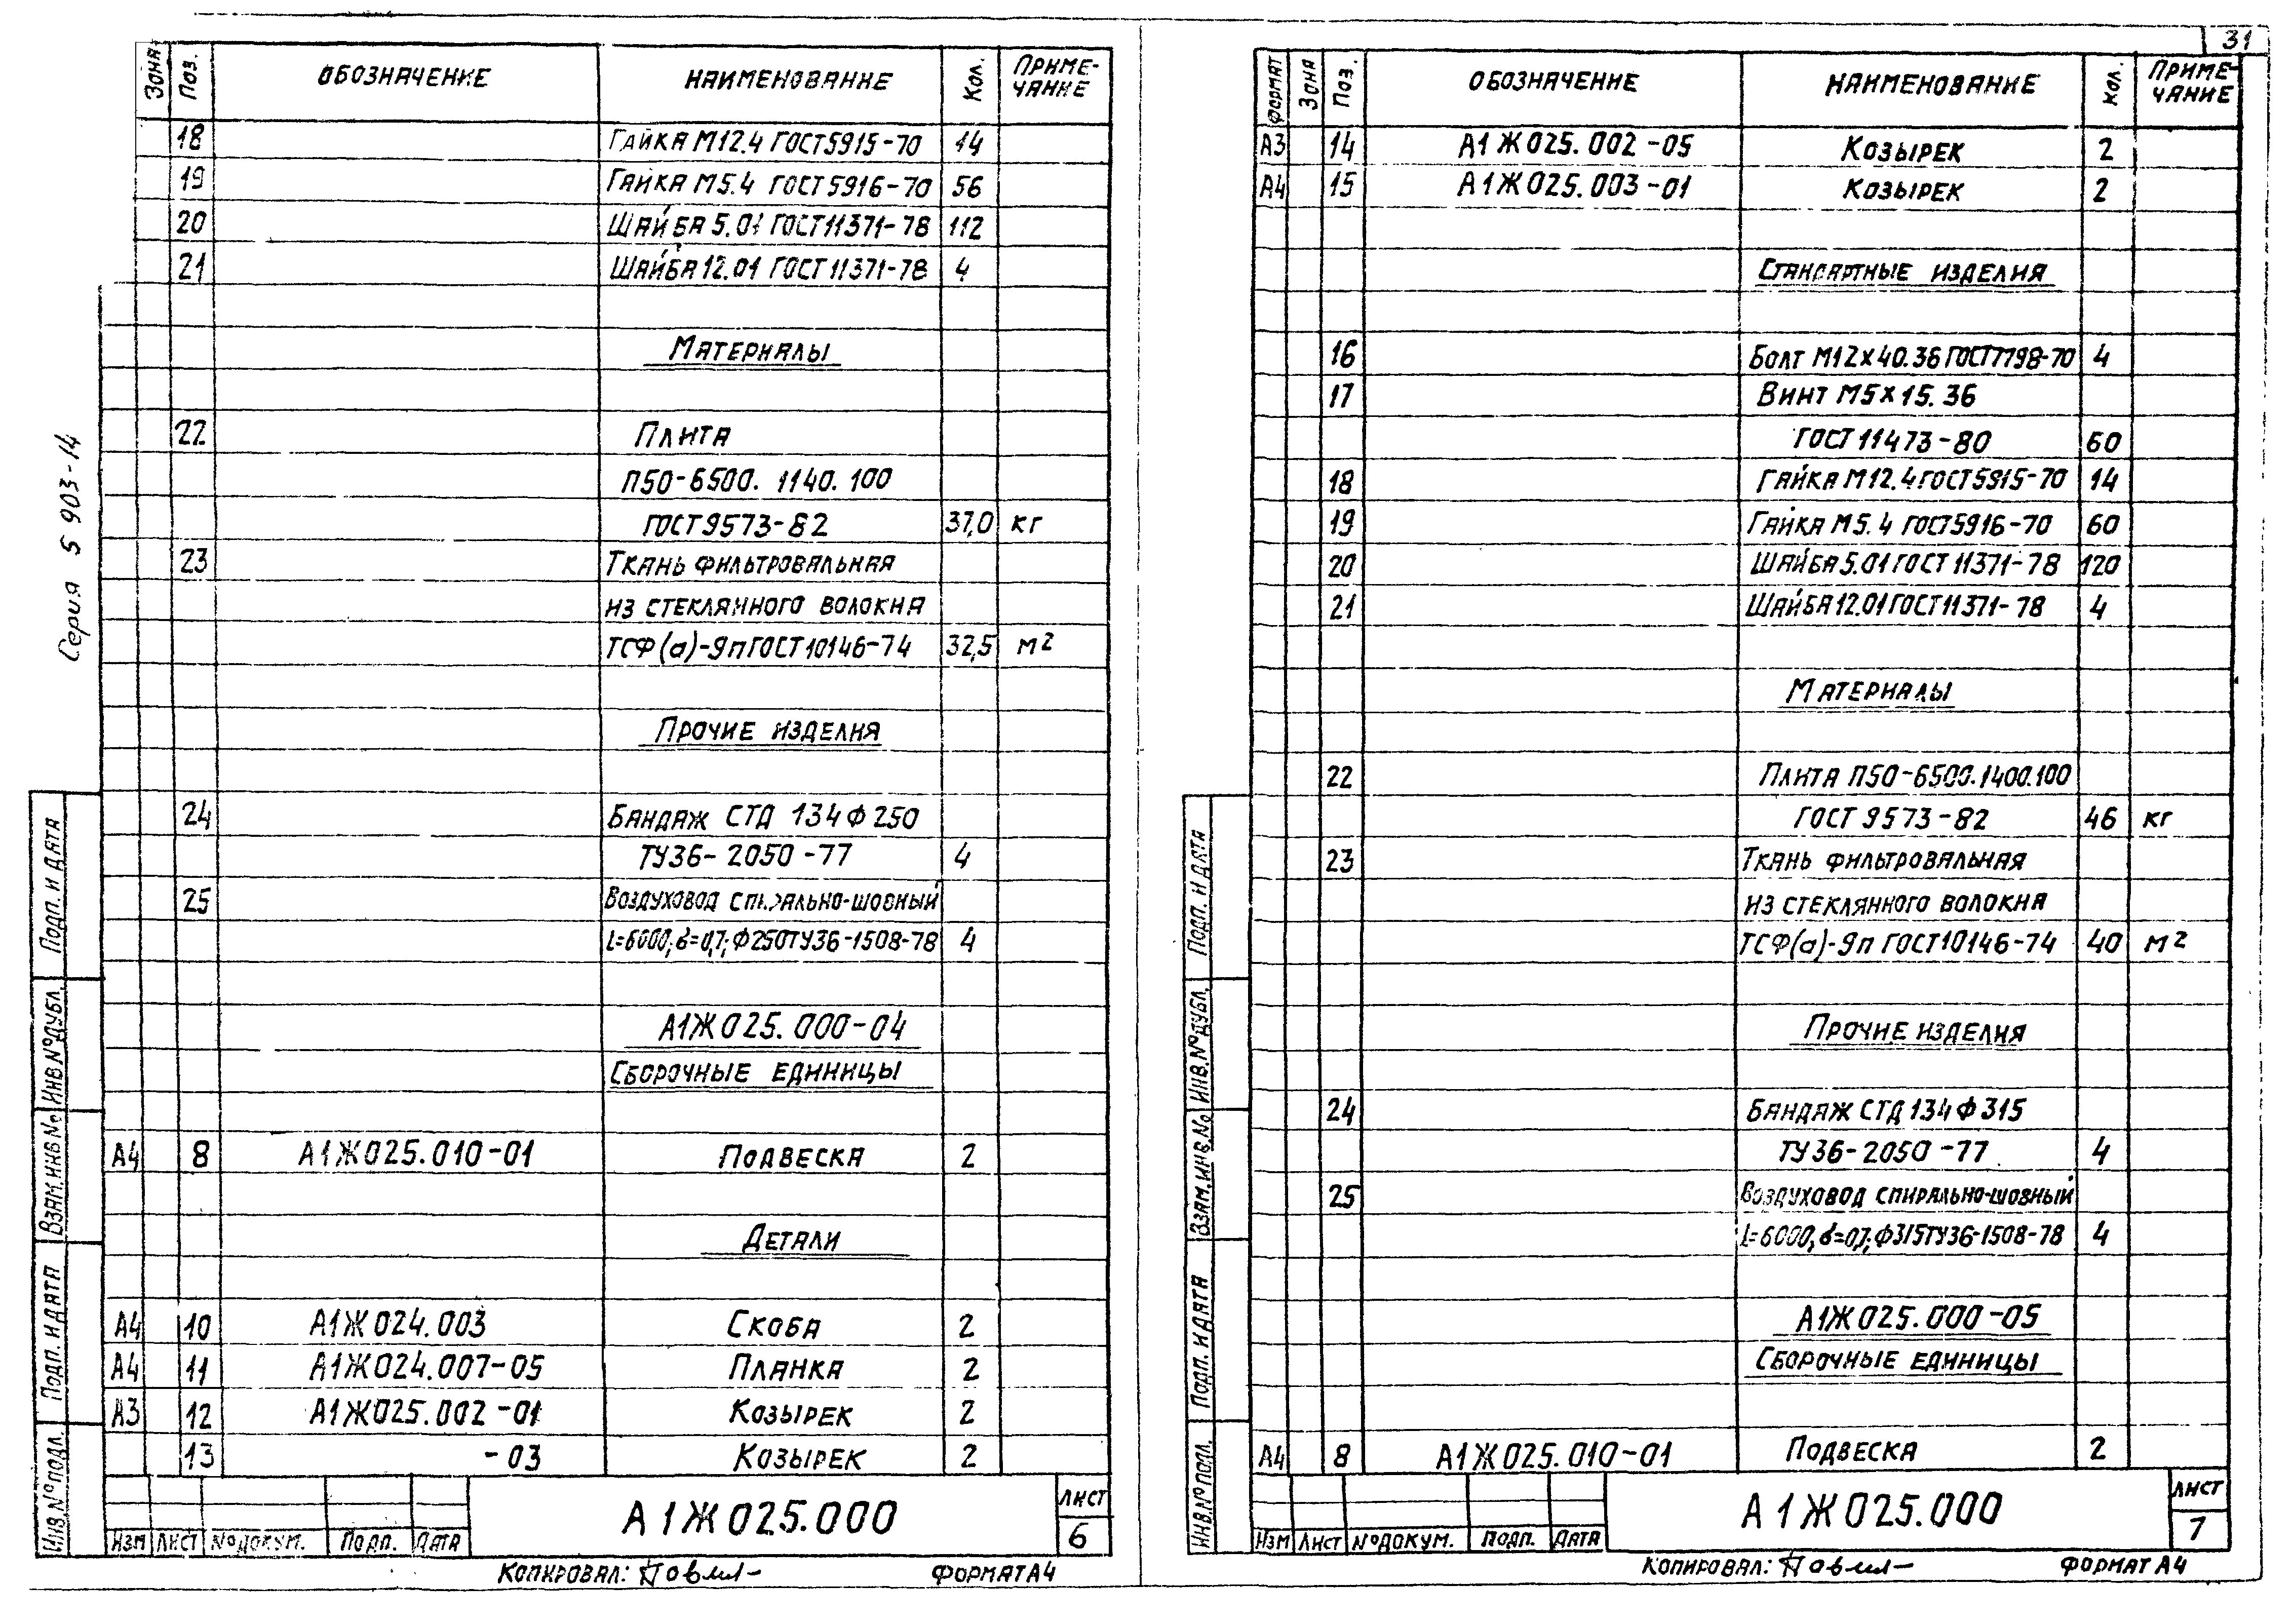 31
Серия 5 903-14
Зона Поз. Обозначение Наименование Кол. Приме-
чание
18 Гайка М12.4 ГОСТ5915-70 14
19 Гайка М5.4 ГОСТ5916-70 56
20 Шайба 5.01 ГОСТ11371-78 112
21 Шайба 12.01 ГОСТ11371-78 4
Материалы
22 Плита
П50-6500. 1140. 100
ГОСТ9573-82 37,0 кг
23 Ткань фильтровальная
из стеклянного волокна
ТСФ(а)-9п ГОСТ10146-74 32,5 м2
Прочие изделия
24 Бандаж СТД 134 Ф250
ТУ36-2050-77 4
25 Воздуховод спирально-шовный
L=6000; б=0,7; Ф250ТУ36-1508-78 4
А1Ж025.000-04
Сборочные единицы
А4 8 А1Ж025.010-01 Подвеска 2
Детали
А4 10 А1Ж024.003 Скоба 2
А4 11 А1Ж024.007-05 Планка 2
А3 12 А1Ж025.002-01 Козырек 2
13 -03 Козырек 2
Подп. и дата
Инв.№дубл.
Взам.инв.№
Подп. и дата
Инв.№подл.
Изм Лист №докум. Подп. Дата
А1Ж025.000
Лист
6
Копировал: Формат А4
Формат Зона Поз. Обозначение Наименование Кол. Приме-
чание
А3 14 А1Ж025.002-05 Козырек 2
А4 15 А1Ж025.003-01 Козырек 2
Стандартные изделия
16 Болт М12х40.36 ГОСТ7798-70 4
17 Винт М5х15.36
ГОСТ11473-80 60
18 Гайка М12.4 ГОСТ5915-70 14
19 Гайка М5.4 ГОСТ5916-70 60
20 Шайба 5.01 ГОСТ11371-78 120
21 Шайба 12.01 ГОСТ11371-78 4
Материалы
22 Плита П50-6500.1400.100
ГОСТ 9573-82 46 кг
23 Ткань фильтровальная
из стеклянного волокна
ТСФ(а)-9п ГОСТ10146-74 40 м2
Прочие изделия
24 Бандаж СТД 134 Ф315
ТУ36-2050-77 4
25 Воздуховод спирально-шовный
L=6000; б=0,7; Ф315ТУ36-1508-78 4
А1Ж025.000-05
Сборочные единицы
А4 8 А1Ж025.010-01 Подвеска 2
Подп. и дата
Инв.№дубл.
Взам.инв.№
Подп. и дата
Инв.№подл.
Изм Лист №докум. Подп. Дата
А1Ж025.000
Лист
7
Копировал: Формат А4